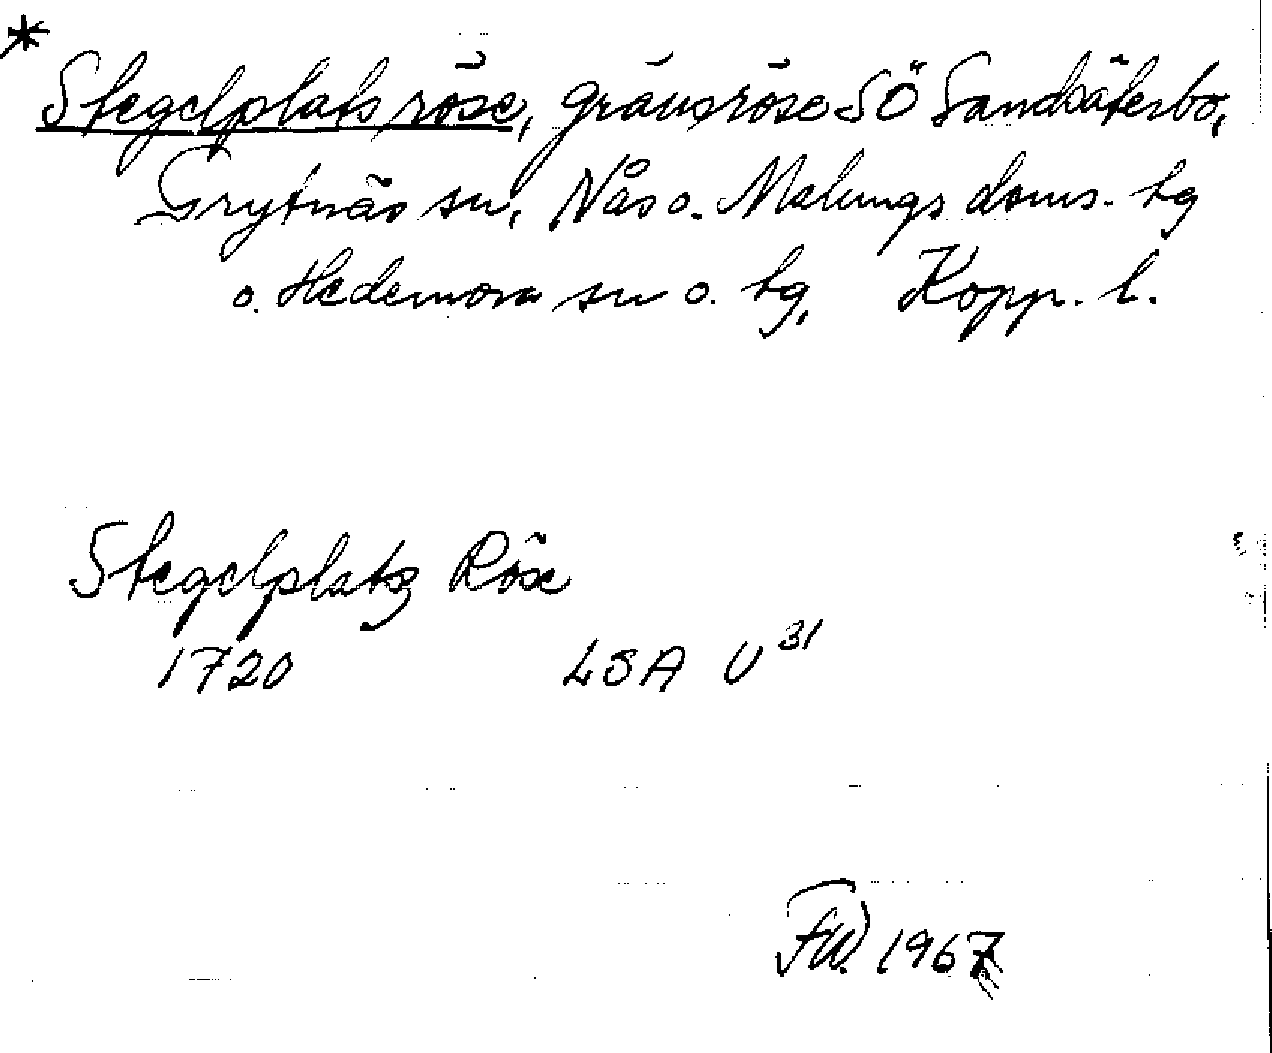 * Stegelplats röse, gränsröse SÖ Sandsäterbo,
Grytnäs sn, Nås o. Malungs doms. tg
o. Hedemora sn o. tg, Kopp. l.
Stegelplatz Röse
1720 LSA U 31
FW. 1967